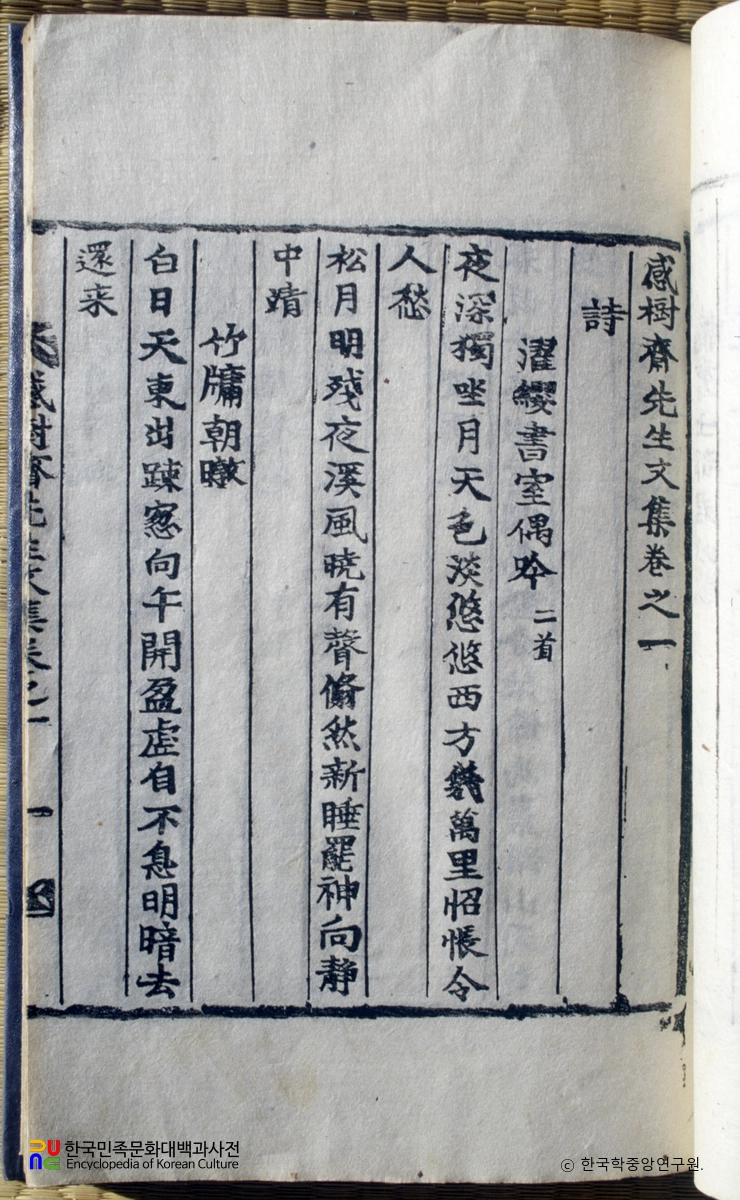 感樹齋先生文集卷之一
詩
濯纓書室偶吟 二首
夜深獨坐月天色淡悠悠西方幾萬里怊悵令
人愁
松月明殘夜溪風曉有聲翛然新睡罷神向靜
中晴
竹牖朝暾
白日天東出踈窓向午開盈虛自不息明暗去
還来
感樹齋先生文集卷之一
一
한국민족문화대백과사전
Encyclopedia of Korean Culture
© 한국학중앙연구원.